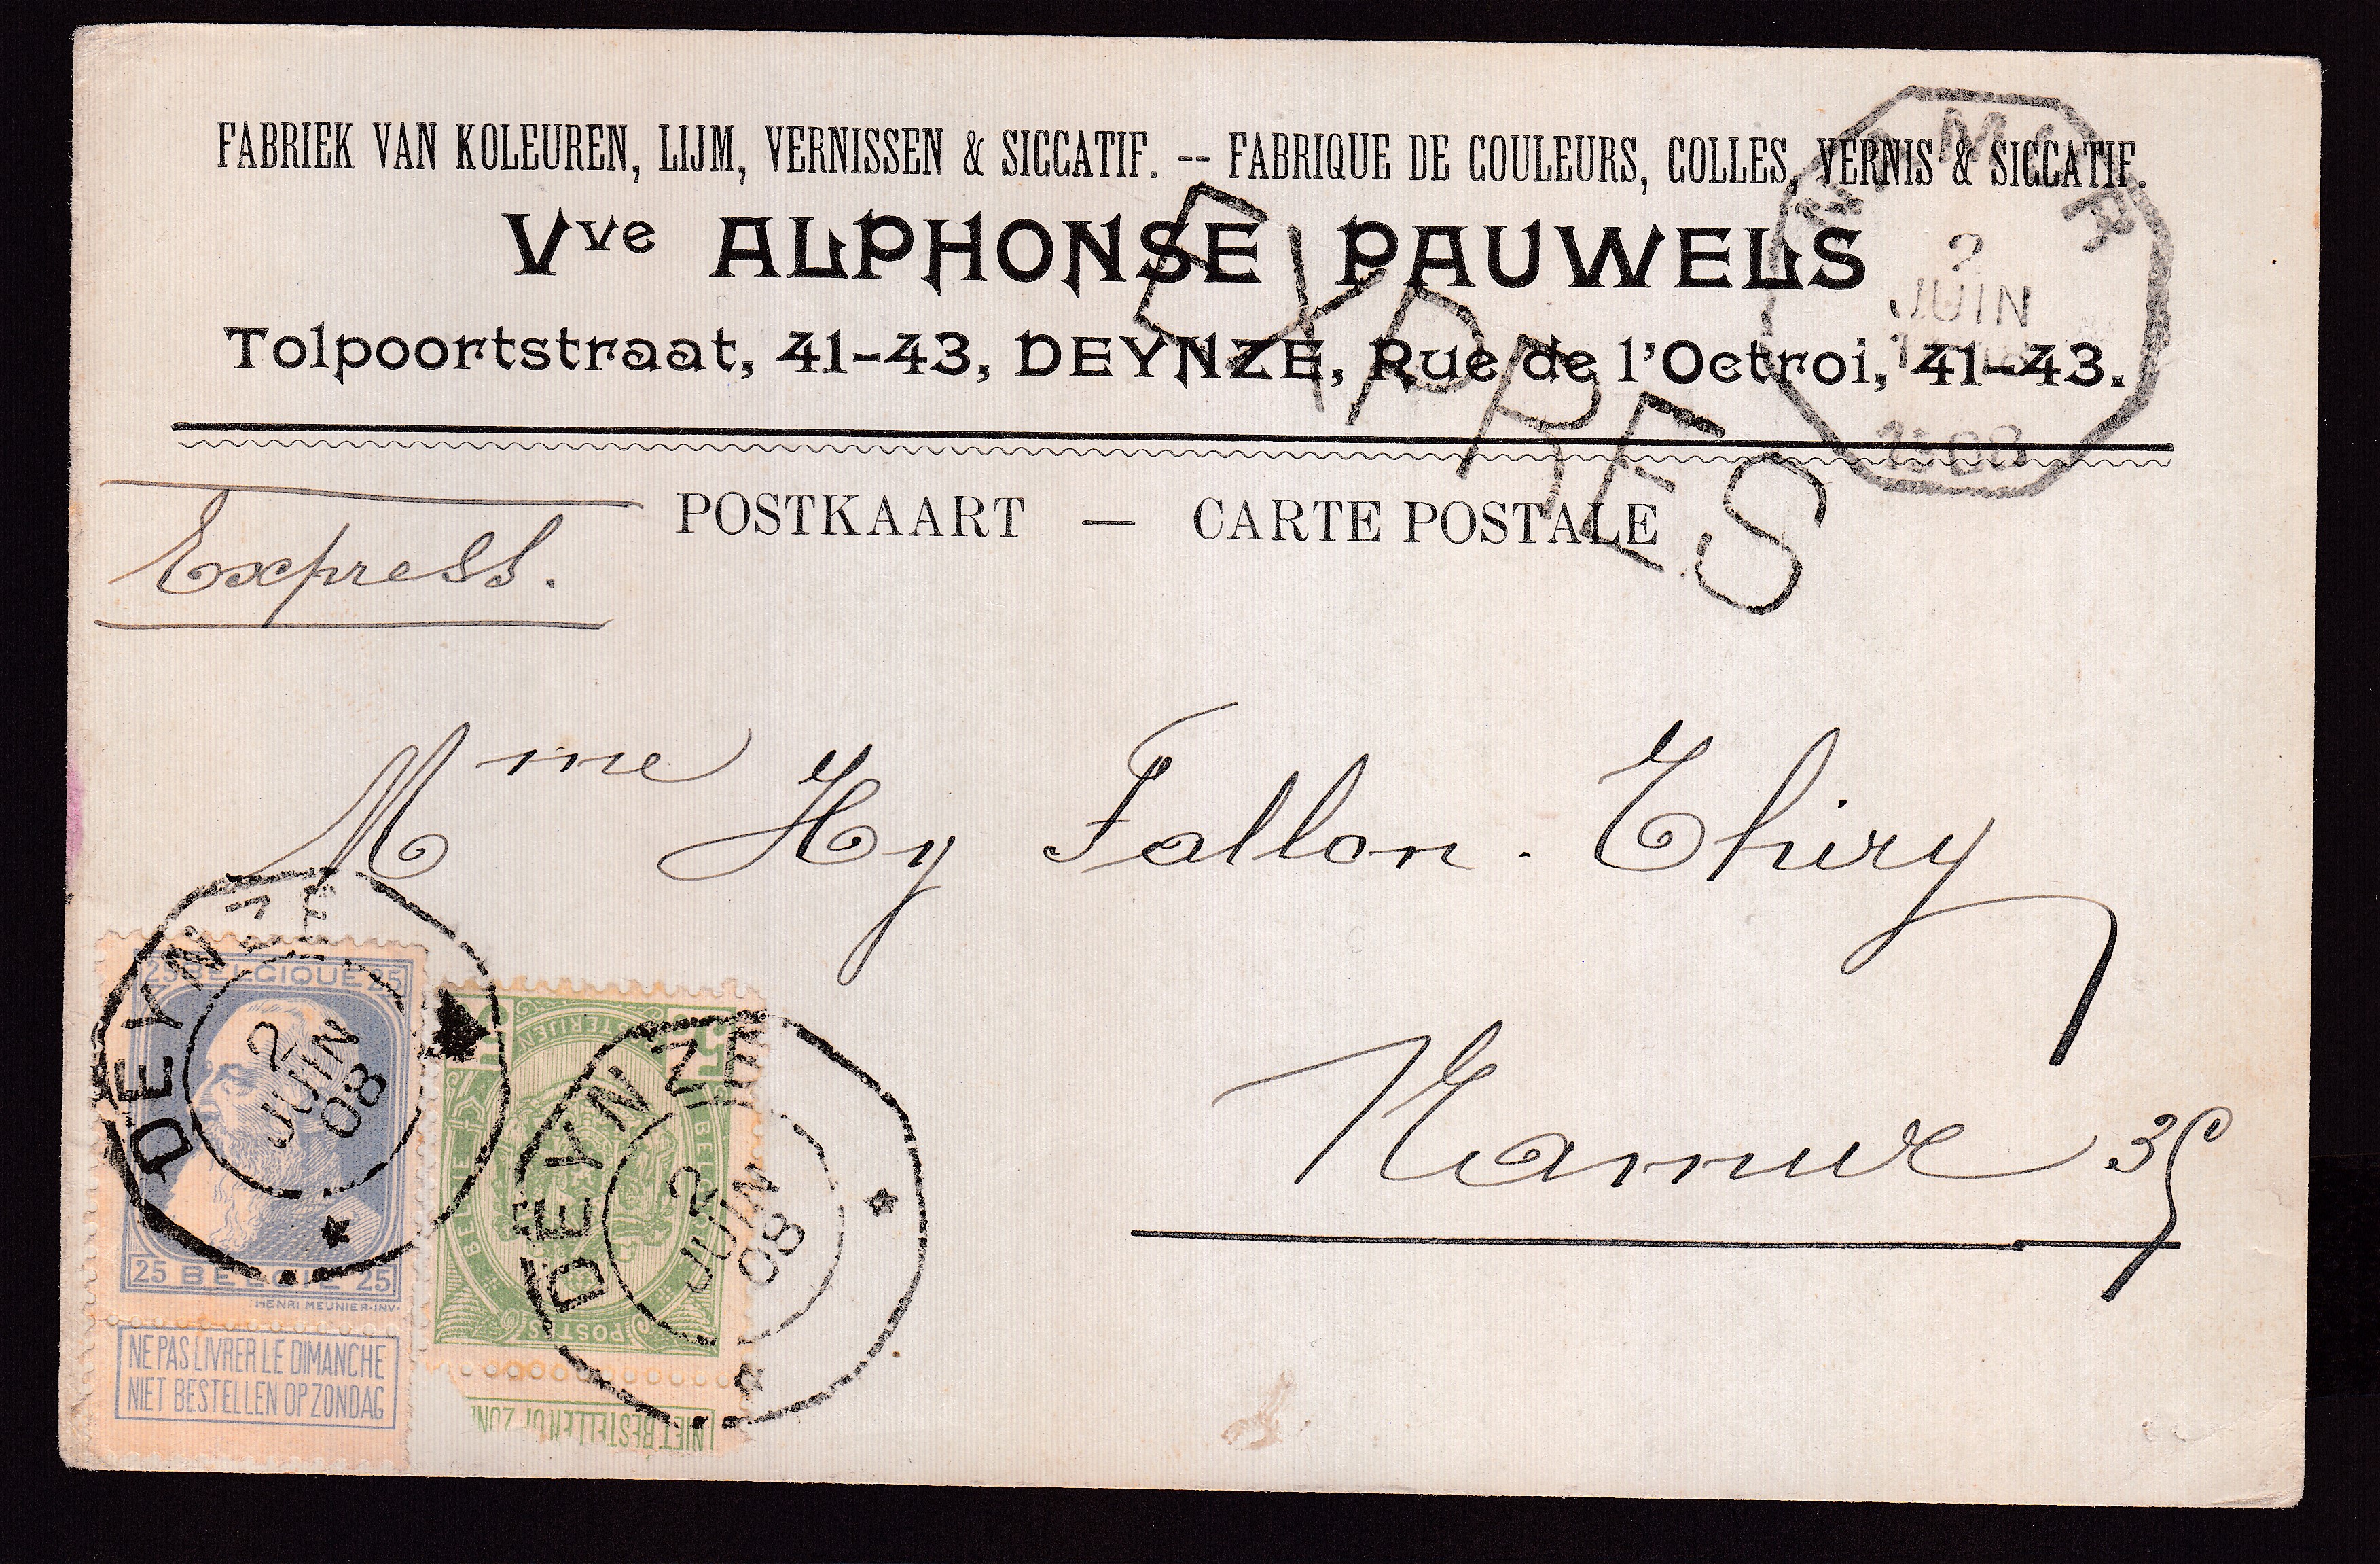 FABRIEK VAN KOLEUREN, LIJM, VERNISSEN & SICCATIF. -- FABRIQUE DE COULEURS, COLLES, VERNIS & SICCATIF.
Vve ALPHONSE PAUWELS
Tolpoortstraat, 41-43, DEYNZE, Rue de l'Octroi, 41-43.
NAMUR
2
JUIN
1908
EXPRES
POSTKAART — CARTE POSTALE
Express.
Mme Hy Fallon-Thiry
Namur
DEYNZE
2
JUIN
08
25 BELGIQUE 25
25 BELGIE 25
HENRI MEUNIER·INV·
NE PAS LIVRER LE DIMANCHE
NIET BESTELLEN OP ZONDAG
DEYNZE
2
JUIN
08
5 5
POSTES
BELGIE
NIET BESTELLEN OP ZON